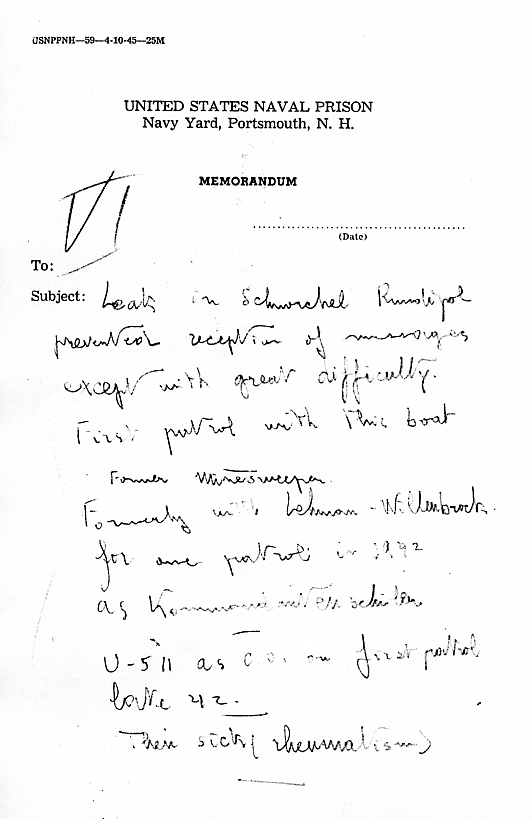 USNPPNH—59—4-10-45—25M
UNITED STATES NAVAL PRISON
Navy Yard, Portsmouth, N. H.
MEMORANDUM
VI
(Date)
To:
Subject: Leak in Schnorchel Rundipol
prevented reception of messages
except with great difficulty.
First patrol with this boat
Former minesweeper.
Formerly with Lehman-Willenbrock
for one patrol in 1942
as Kommandantenschüler
U-511 as C.O. on first patrol
late 42.
Then sick (rheumatism)